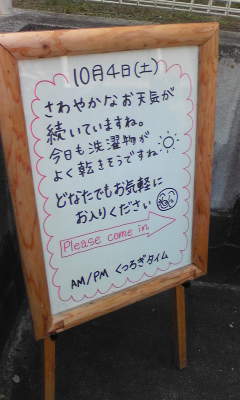 10月4日(土)
さわやかなお天気が
続いていますね。
今日も洗濯物が
よく乾きそうですね
どなたでもお気軽に
お入りください
Please come in
AM/PM くつろぎタイム